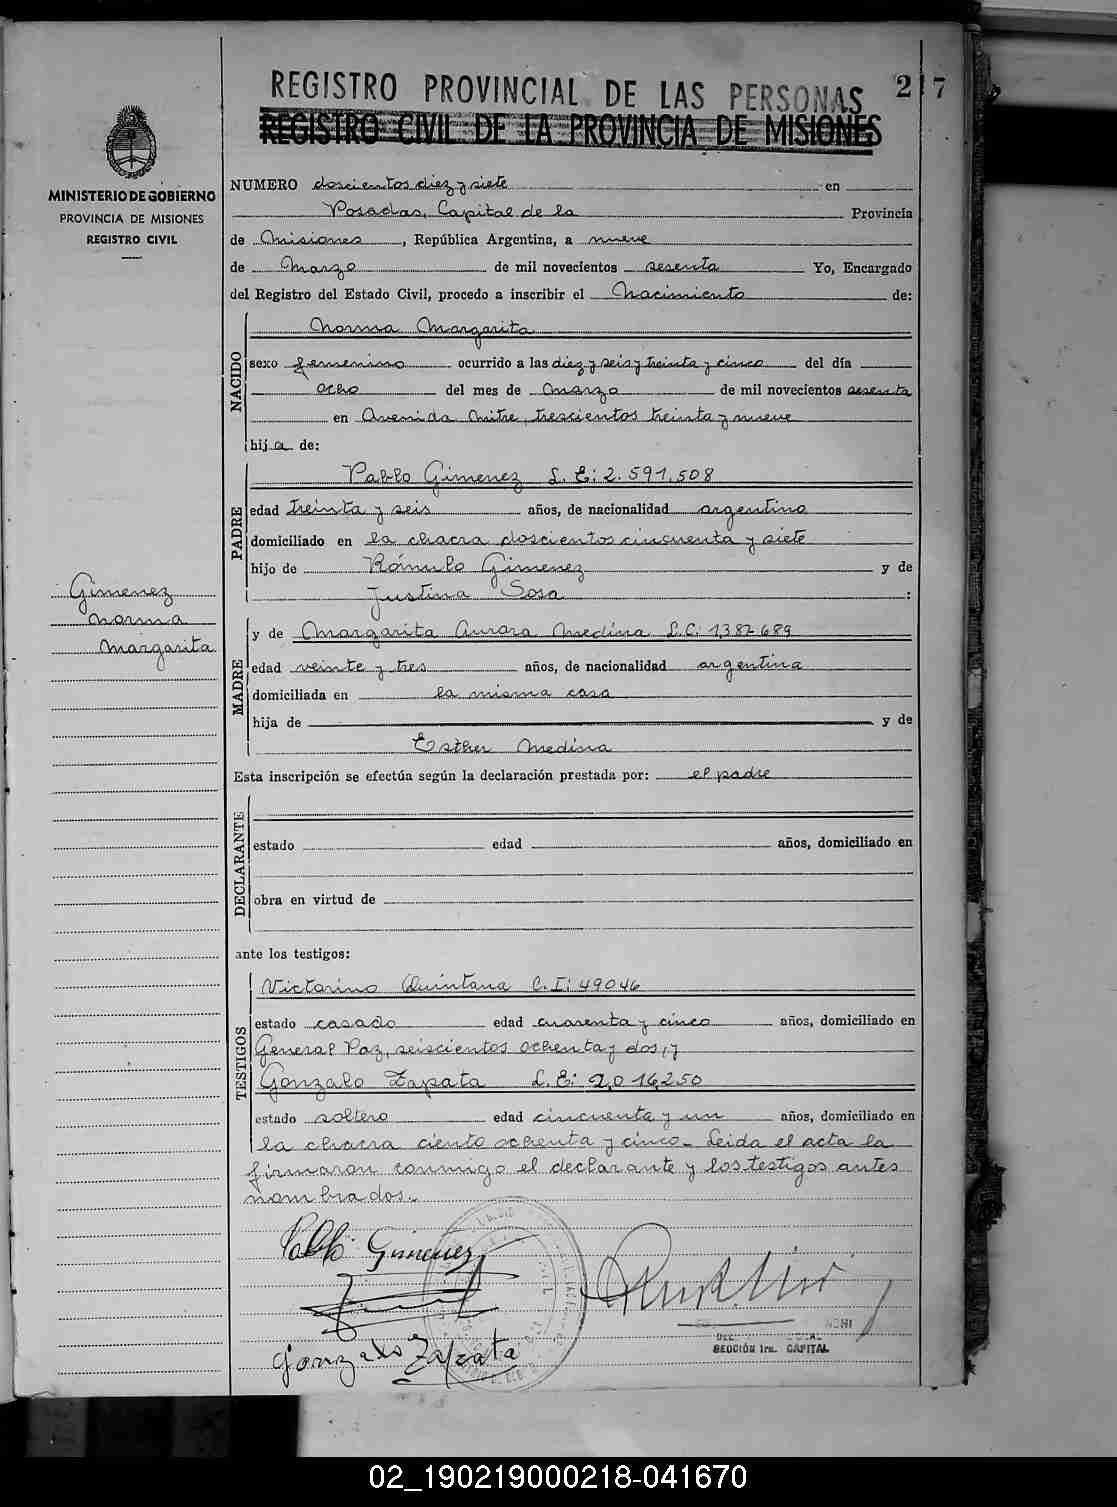 REGISTRO PROVINCIAL DE LAS PERSONAS
217
REGISTRO CIVIL DE LA PROVINCIA DE MISIONES
MINISTERIO DE GOBIERNO
PROVINCIA DE MISIONES
REGISTRO CIVIL
NUMERO doscientos diez y siete en
Posadas, Capital de la Provincia
de Misiones, República Argentina, a nueve
de Marzo de mil novecientos sesenta Yo, Encargado
del Registro del Estado Civil, procedo a inscribir el Nacimiento de:
NACIDO
Norma Margarita
sexo femenino ocurrido a las diez y seis y treinta y cinco del día
ocho del mes de Marzo de mil novecientos sesenta
en Avenida Mitre, trescientos treinta y nueve
hija de:
PADRE
Pablo Gimenez L. E: 2.591.508
edad treinta y seis años, de nacionalidad argentino
domiciliado en la chacra doscientos cincuenta y siete
hijo de Rómulo Gimenez y de
Justina Sosa :
Gimenez
Norma
Margarita
MADRE
y de Margarita Aurora Medina L.C: 1.382.689
edad veinte y tres años, de nacionalidad argentina
domiciliada en la misma casa
hija de y de
Esther Medina
Esta inscripción se efectúa según la declaración prestada por: el padre
DECLARANTE
estado edad años, domiciliado en
obra en virtud de
ante los testigos:
TESTIGOS
Victorino Quintana C.I: 49046
estado casado edad cuarenta y cinco años, domiciliado en
General Paz, seiscientos ochenta y dos, y
Gonzalo Zapata L.E: 2.016.250
estado soltero edad cincuenta y un años, domiciliado en
la chacra ciento ochenta y cinco- Leida el acta la
firmaron conmigo el declarante y los testigos antes
nombrados.
Pablo Gimenez
Gonzalo Zapata
SECCIÓN 1ra. CAPITAL
02_190219000218-041670